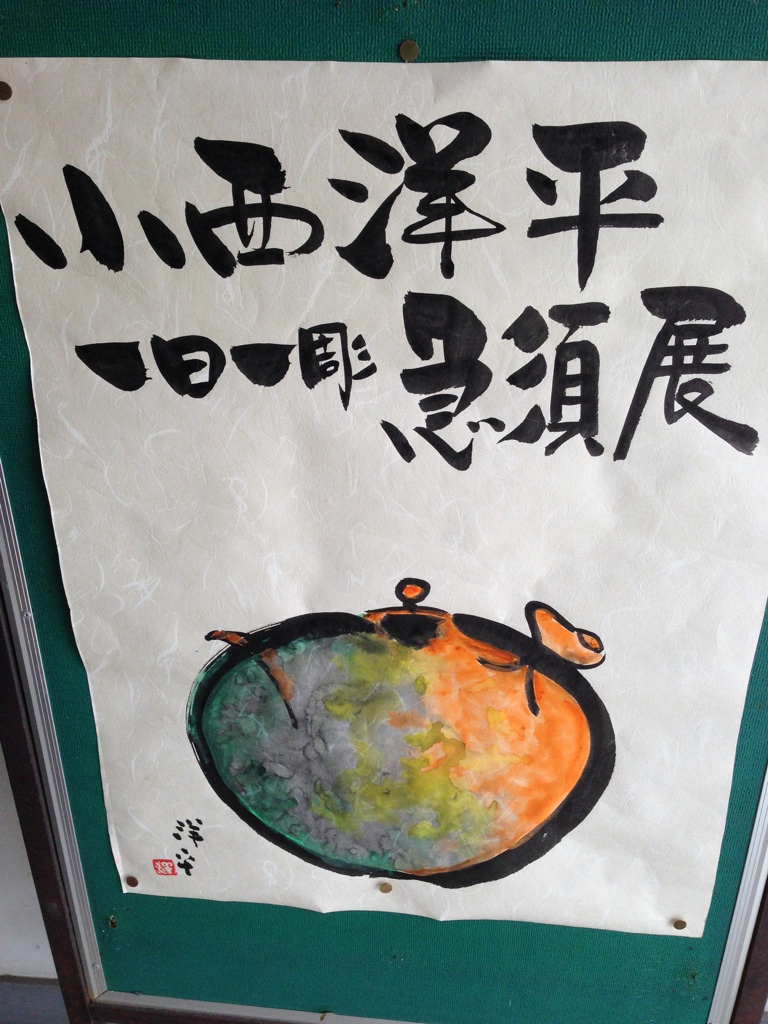 小西洋平
一日一彫 急須展
洋平